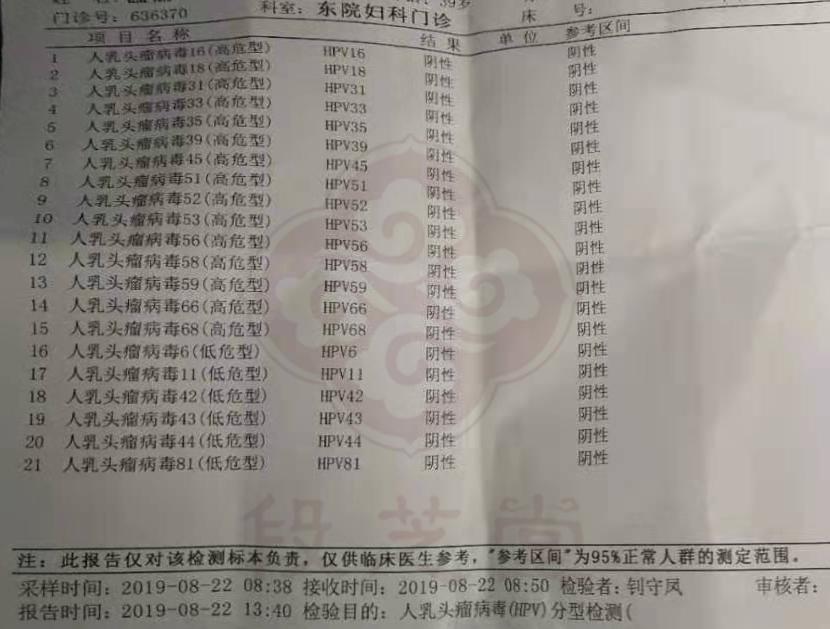 门诊号: 636370 科室: 东院妇科门诊 床 号:
项目名称 结果 单位 参考区间
1 人乳头瘤病毒16(高危型) HPV16 阴性 阴性
2 人乳头瘤病毒18(高危型) HPV18 阴性 阴性
3 人乳头瘤病毒31(高危型) HPV31 阴性 阴性
4 人乳头瘤病毒33(高危型) HPV33 阴性 阴性
5 人乳头瘤病毒35(高危型) HPV35 阴性 阴性
6 人乳头瘤病毒39(高危型) HPV39 阴性 阴性
7 人乳头瘤病毒45(高危型) HPV45 阴性 阴性
8 人乳头瘤病毒51(高危型) HPV51 阴性 阴性
9 人乳头瘤病毒52(高危型) HPV52 阴性 阴性
10 人乳头瘤病毒53(高危型) HPV53 阴性 阴性
11 人乳头瘤病毒56(高危型) HPV56 阴性 阴性
12 人乳头瘤病毒58(高危型) HPV58 阴性 阴性
13 人乳头瘤病毒59(高危型) HPV59 阴性 阴性
14 人乳头瘤病毒66(高危型) HPV66 阴性 阴性
15 人乳头瘤病毒68(高危型) HPV68 阴性 阴性
16 人乳头瘤病毒6(低危型) HPV6 阴性 阴性
17 人乳头瘤病毒11(低危型) HPV11 阴性 阴性
18 人乳头瘤病毒42(低危型) HPV42 阴性 阴性
19 人乳头瘤病毒43(低危型) HPV43 阴性 阴性
20 人乳头瘤病毒44(低危型) HPV44 阴性 阴性
21 人乳头瘤病毒81(低危型) HPV81 阴性 阴性
段芝堂
注: 此报告仅对该检测标本负责, 仅供临床医生参考, "参考区间"为95%正常人群的测定范围。
采样时间: 2019-08-22 08:38 接收时间: 2019-08-22 08:50 检验者: 钊守凤 审核者:
报告时间: 2019-08-22 13:40 检验目的: 人乳头瘤病毒(HPV)分型检测(